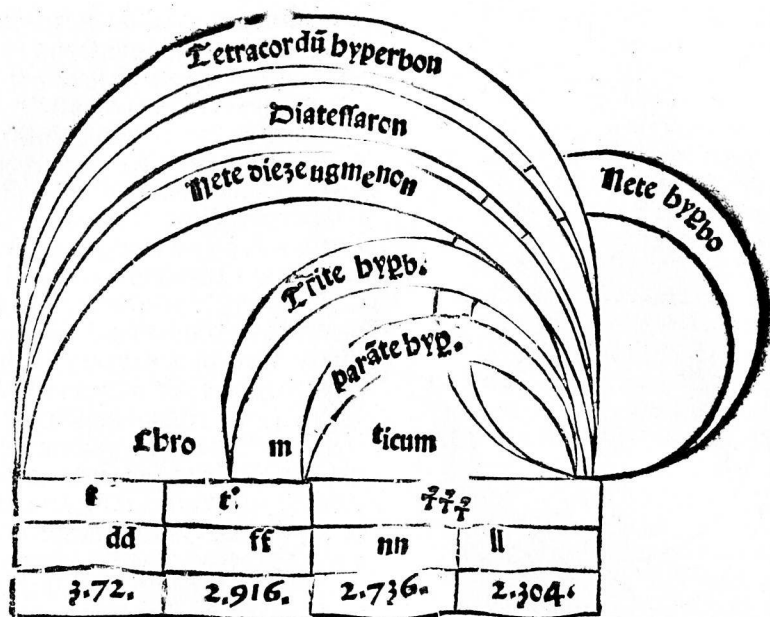 Tetracordū hyperbon
Diatessaron
Nete diezeugmenon
Nete hyꝑbo
Trite hyꝑb.
parāte hyp.
Chro m ticum
dd ff nn ll
3.72. 2.916. 2.736. 2.304.